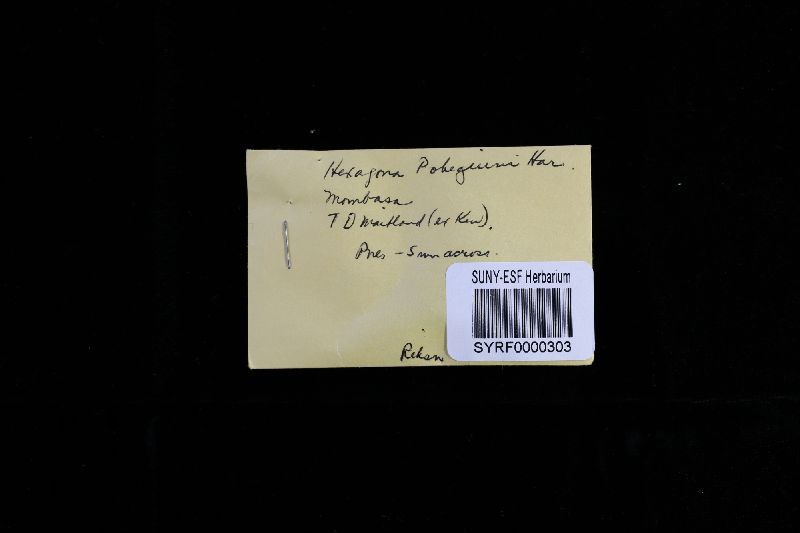 Hexagona Pobeguini Har.
Mombasa
T D Maitland (ex Kew).
Pores - 5mm across.
SUNY-ESF Herbarium
SYRF0000303